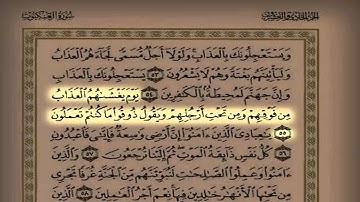 الجزء الحادي والعشرون سورة العنكبوت
ويستعجلونك بالعذاب ولولا أجل مسمى لجاءهم العذاب
وليأتينهم بغتة وهم لا يشعرون ٥٣ يستعجلونك بالعذاب
وإن جهنم لمحيطة بالكافرين ٥٤ يوم يغشاهم العذاب
من فوقهم ومن تحت أرجلهم ويقول ذوقوا ما كنتم تعملون
٥٥ يا عبادي الذين آمنوا إن أرضي واسعة فإياي فاعبدون
٥٦ كل نفس ذائقة الموت ثم إلينا ترجعون ٥٧ والذين
آمنوا وعملوا الصالحات لنبوئنهم من الجنة غرفا تجري
من تحتها الأنهار خالدين فيها نعم أجر العاملين ٥٨ الذين